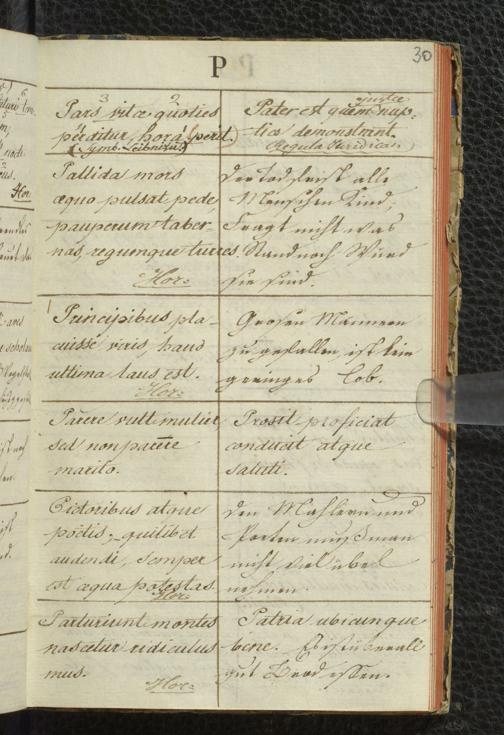 30
P
Pars vitae quoties
perditur hora, perit.
(Symb. Leibnitzii)
Pater est quem justae nup-
tiae demonstrant.
(Regula Juridica)
Pallida mors
aequo pulsat pede,
pauperum taber-
nas, regumque turres.
Hor:
Der Tod frißt alle
Menschen Kind,
Fragt nicht was
Stand noch Würd
sie sind.
Principibus pla-
cuisse viris, haud
ultima laus est.
Hor:
Großen Männern
zu gefallen, ist kein
geringes Lob.
Parere vult mulier
sed non parere
marito.
Prosit, proficiat
conducit atque
saluti.
Pictoribus atque
poëtis, quilibet
audendi, semper
est aequa potestas.
Hor:
Den Mahlern und
Poeten muß man
nicht viel übel
nehmen.
Parturiunt montes
nascetur ridiculus
mus.
Hor:
Patria ubicunque
bene. Es ist überall
gut Brod essen.